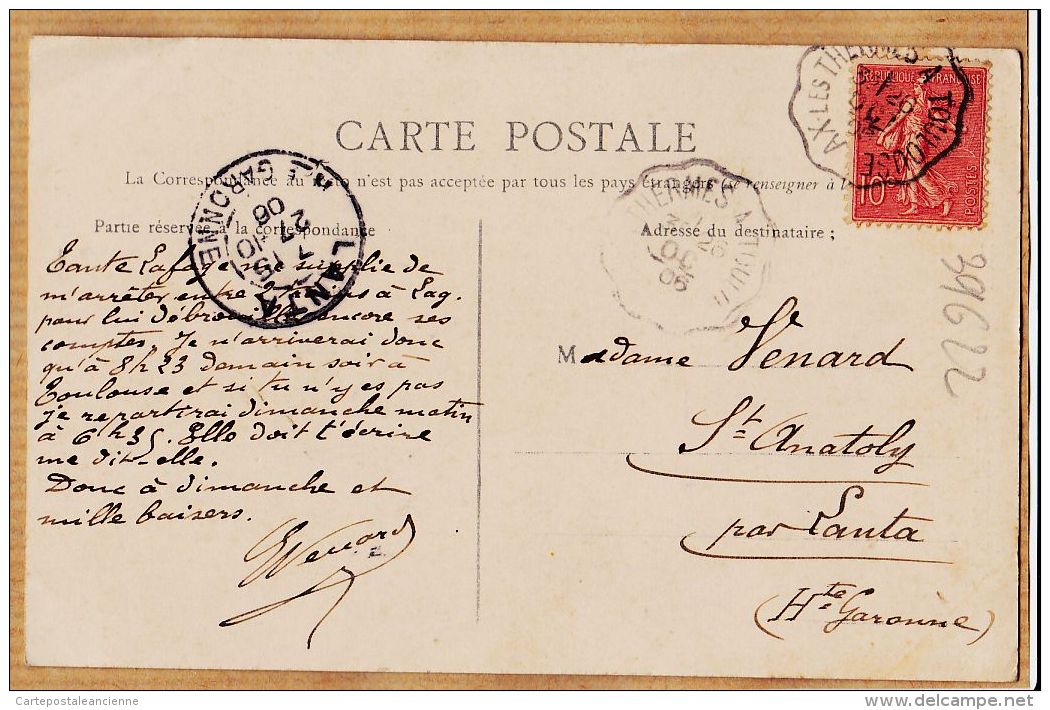 CARTE POSTALE
La Correspondance au recto n'est pas acceptée par tous les pays étrangers (se renseigner à la
Partie réservée à la correspondance
Adresse du destinataire ;
Tante Lafage me supplie de
m'arrêter entre à Lag.
pour lui débrouiller encore ses
comptes. Je n'arriverai donc
qu'à 8h23 demain soir à
Toulouse et si tu n'y es pas
je repartirai dimanche matin
à 6h35. Elle doit t'écrire
me dit-elle.
Donc à dimanche et
mille baisers.
Venard
Madame Venard
St. Anatoly
par Lanta
(Hte. Garonne)
AX-LES-THERMES A TOULOUSE
REPUBLIQUE FRANÇAISE
10
POSTES
THERMES A TOU
26
06
LANTA
HTE GARONNE
15 10
7
06
39622
Cartepostaleancienne
delcampe.net